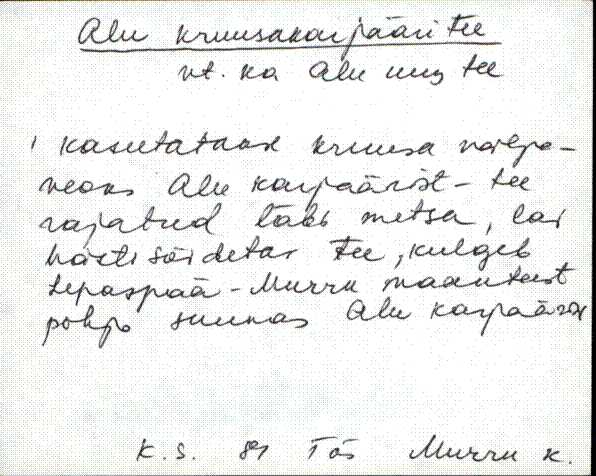 Alu kruusakarjääri tee
vt. ka Alu uus tee
kasutatakse kruusa välja-
veoks Alu karjäärist - tee
rajatud läbi metsa, lai
hästi sõidetav tee, kulgeb
Lepaspää - Murru maanteest
põhja suunas Alu karjääri
K. S. 81 Tõs Murru k.